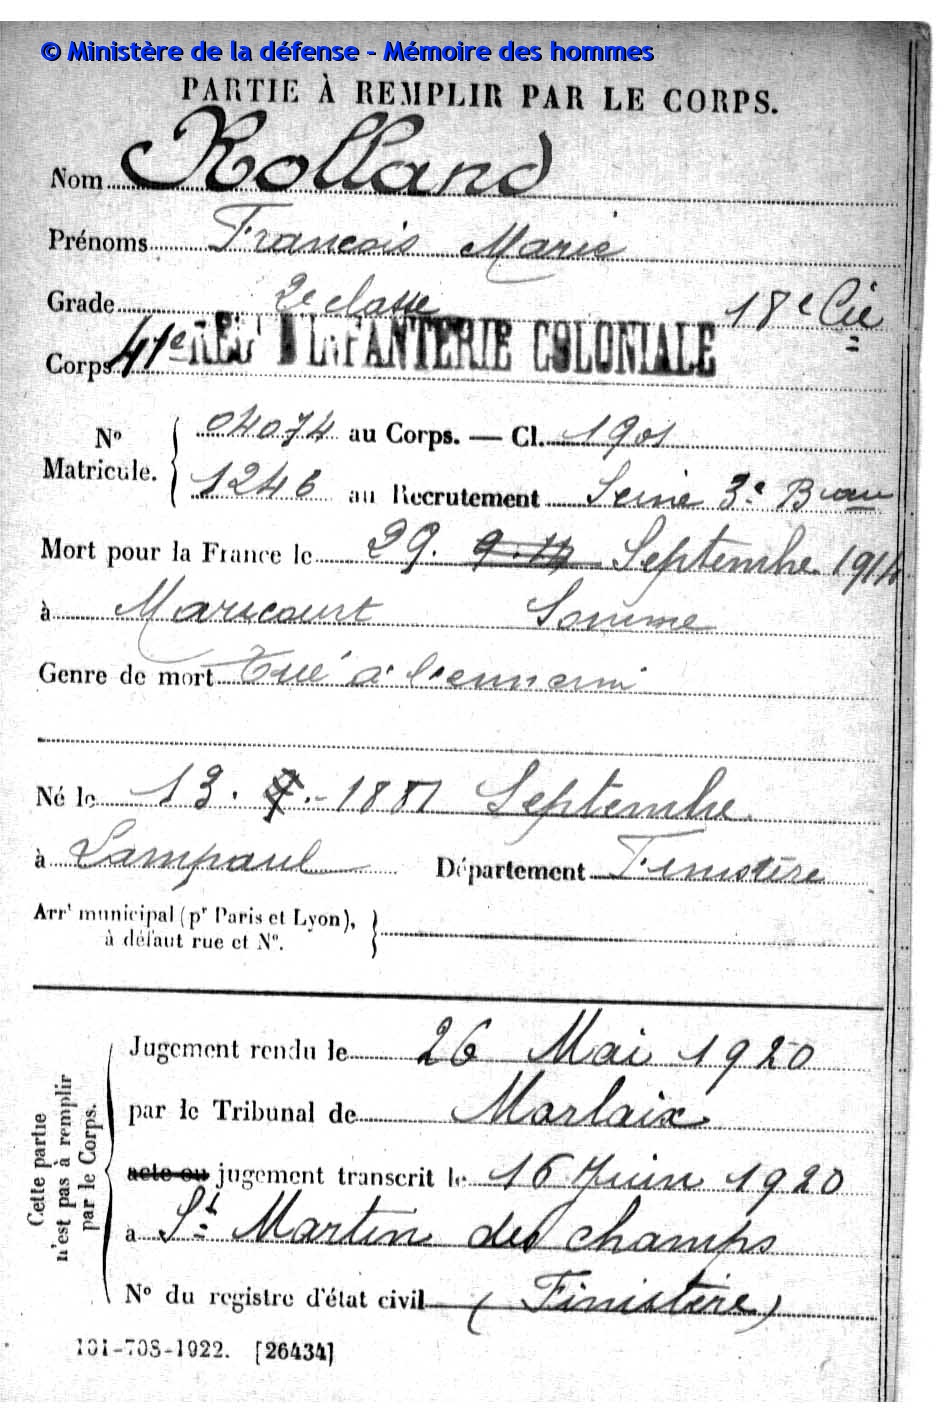 © Ministère de la défense - Mémoire des hommes
PARTIE À REMPLIR PAR LE CORPS.
Nom Rolland
Prénoms François Marie
Grade 2e classe 18e Cie
Corps 41e REGt D'INFANTERIE COLONIALE
No Matricule. 04074 au Corps. — Cl. 1901
1246 au Recrutement Seine 3e Bau
Mort pour la France le 29. 9.14 Septembre 1914
à Maricourt Somme
Genre de mort Tué à l'ennemi
Né le 13. 9. 1881 Septembre
à Lampaul Département Finistère
Arrt municipal (pr Paris et Lyon),
à défaut rue et No.
Cette partie
n'est pas à remplir
par le Corps.
Jugement rendu le 26 Mai 1920
par le Tribunal de Morlaix
acte ou jugement transcrit le 16 Juin 1920
à St Martin des champs
No du registre d'état civil (Finistère)
101-708-1922. [26434]